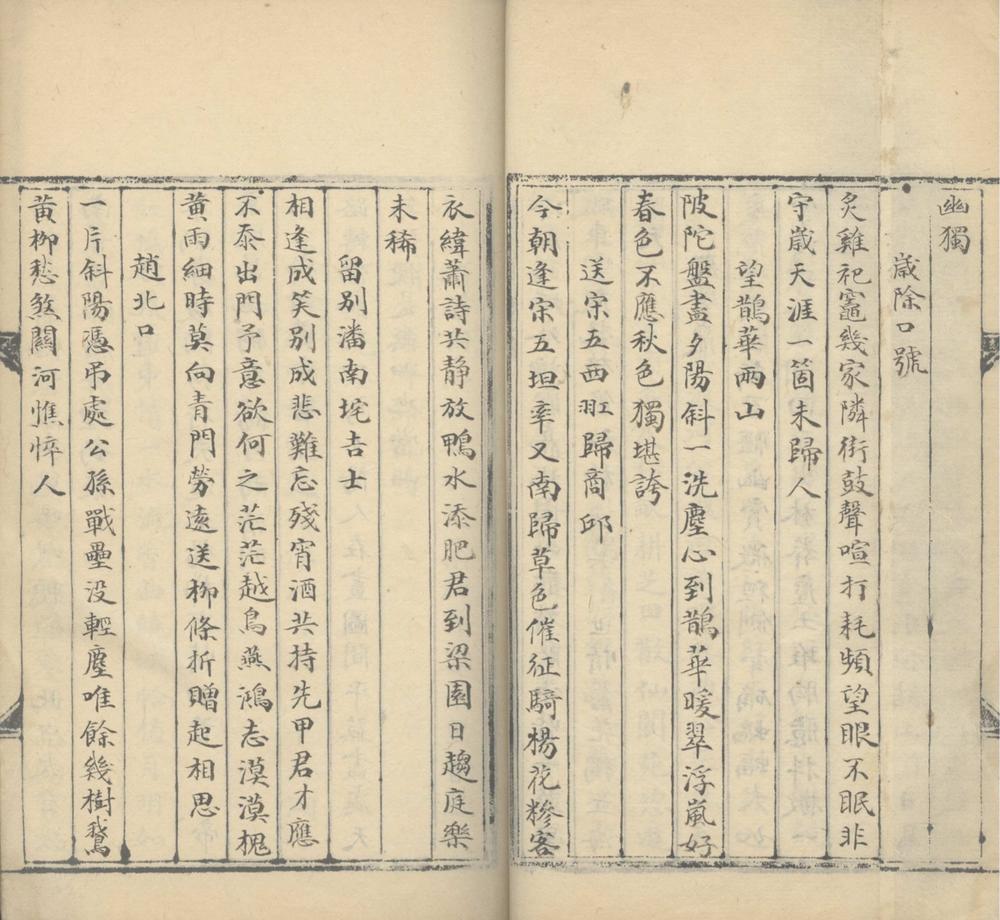 幽獨
歲除口號
炙雞祀竈幾家隣街鼓聲喧打耗頻望眼不眠非
守歲天涯一箇未歸人
望鵲華兩山
陂陀盤盡夕陽斜一洗塵心到鵲華暖翠浮嵐好
春色不應秋色獨堪誇
送宋五西羾歸商邱
今朝逢宋五坦率又南歸草色催征騎楊花糝客
衣緯蕭詩共靜放鴨水添肥君到梁園日趨庭樂
未稀
留別潘南垞吉士
相逢成笑別成悲難忘殘宵酒共持先甲君才應
不忝出門予意欲何之茫茫越鳥燕鴻志漠漠槐
黃雨細時莫向青門勞遠送柳條折贈起相思
趙北口
一片斜陽憑弔處公孫戰壘没輕塵唯餘幾樹鵞
黃柳愁煞關河憔悴人